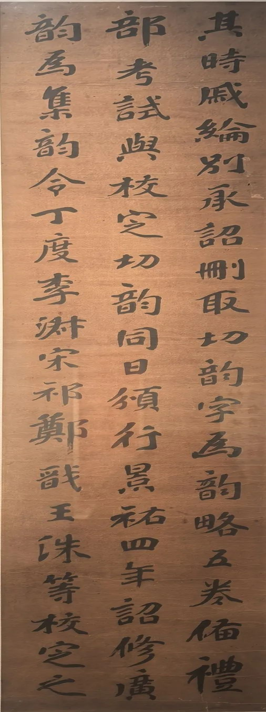 其時戚綸別承詔刪取切韵字為韵略五卷備禮
部考試與校定切韵同日頒行景祐四年詔修廣
韵為集韵令丁度李淑宋祁鄭戩王洙等校定之